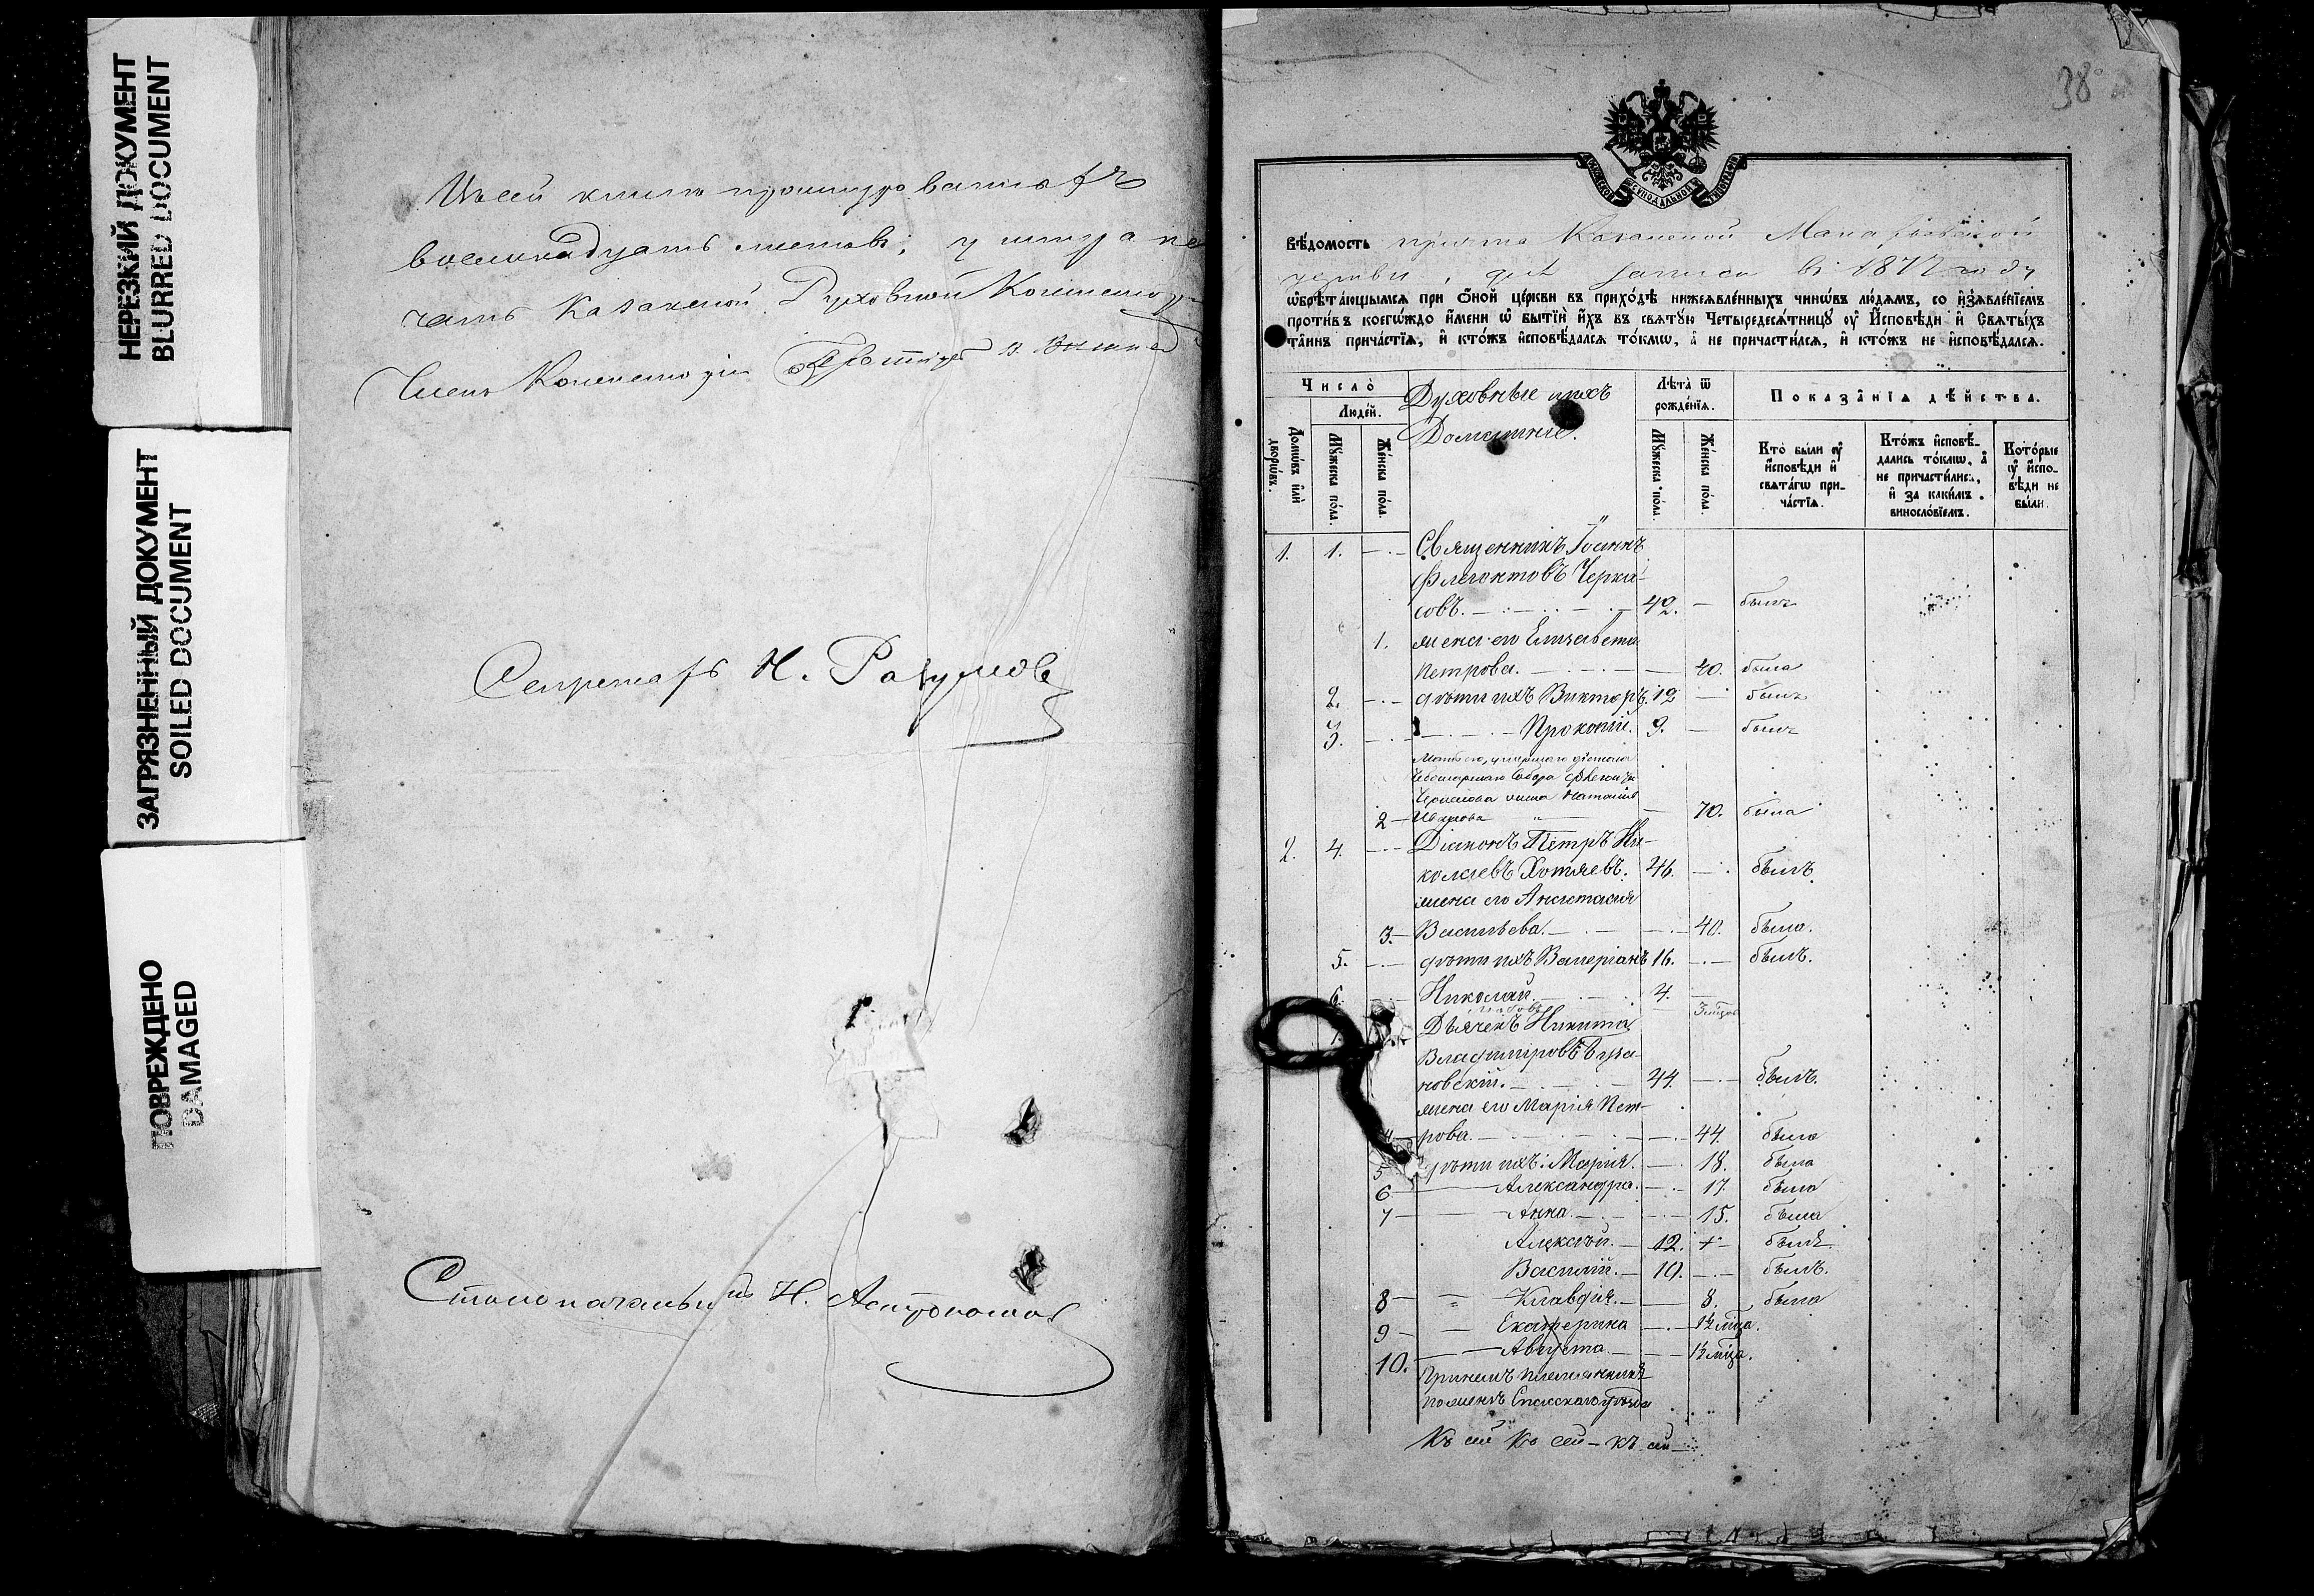 НЕРЕЗКИЙ ДОКУМЕНТ
BLURRED DOCUMENT
ЗАГРЯЗНЕННЫЙ ДОКУМЕНТ
SOILED DOCUMENT
ПОВРЕЖДЕНО
DAMAGED
сей книги
восемнадцать листовъ; у шнура пе
чать Казанской Духовной Консисторіи
Членъ Консисторіи
Секретарь Н. Разумовъ
Столоначальникъ Н. Астрономовъ
38
МОСКОВСКОЙ СѴНОДАЛЬНОЙ ТИПОГРАФІИ
Вѣдомость причта Казанской
церкви, для записи въ 1872 году
ѡбрѣтающымся при ѻной церкви въ приходѣ нижеявленныхъ чинѡвъ людямъ, со изъявленіемъ
противъ коегѡждо имени ѡ бытіи ихъ въ святую Четыредесятницу оу Исповѣди и Святыхъ
таинъ причастія, и ктожъ исповѣдался токмѡ, а не причастился, и ктожъ не исповѣдался.
Число
Людей.
Домѡвъ или дворѡвъ.
Мужеска пола.
Женска пола.
Духовные и ихъ
Домашніе.
Лѣта ѿ рожденія.
Мужеска пола.
Женска пола.
Показанія дѣйства.
Кто были оу исповѣди и святагѡ причастія.
Ктожъ исповѣдались токмѡ, а не причастились, и за какимъ винословіемъ.
Которые оу исповѣди не были.
1. 1. Священникъ Іоаннъ
Флегонтовъ Черка-
совъ. 42. былъ
1. жена его Елисавета
Петрова. 40. была
2. дѣти ихъ Викторъ. 12 былъ
3. Прокопій. 9. былъ
Мать его, умершаго діакона
Чебоксарскаго Собора Флегонта
Черкасова жена Наталія
2 70. была
2. 4. Діаконъ Петръ Ни-
колаевъ Хотяевъ. 46. былъ
жена его Анастасія
3. Васильева. 40. была.
5. дѣти ихъ Валеріанъ 16. былъ.
6. Николай 4.
Дьячекъ Никита
Владиміровъ
новскій. 44. былъ.
жена его Марія Пет-
4 рова. 44. была
5 дѣти ихъ: Марія. 18. была
6 Александра. 17. была
7 Анна. 15. была
Алексѣй. 12. былъ
Василій. 10. былъ.
8 Клавдія. 8. была
9 Екатерина
10. Августа.
племянникъ
Спасскаго уѣзда
Къ сей Къ сей – къ сей